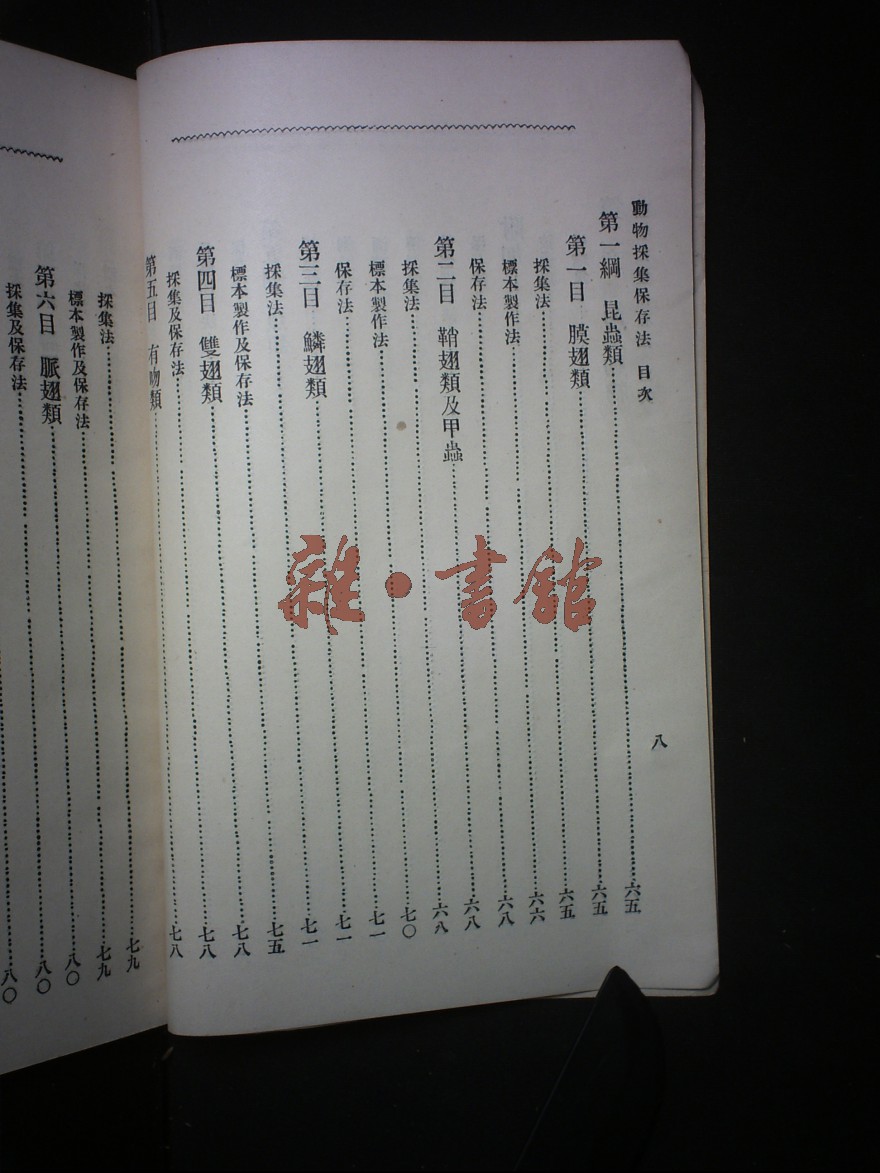 動物採集保存法 目次 八
第一綱 昆蟲類……六五
第一目 膜翅類……六五
採集法……六五
標本製作法……六六
保存法……六八
第二目 鞘翅類及甲蟲……六八
採集法……六八
標本製作法……七〇
保存法……七一
第三目 鱗翅類……七一
採集法……七一
標本製作及保存法……七五
第四目 雙翅類……七八
採集及保存法……七八
第五目 有吻類……七八
採集法……七九
標本製作及保存法……七九
第六目 脈翅類……八〇
採集及保存法……八〇
八〇
雜·書館